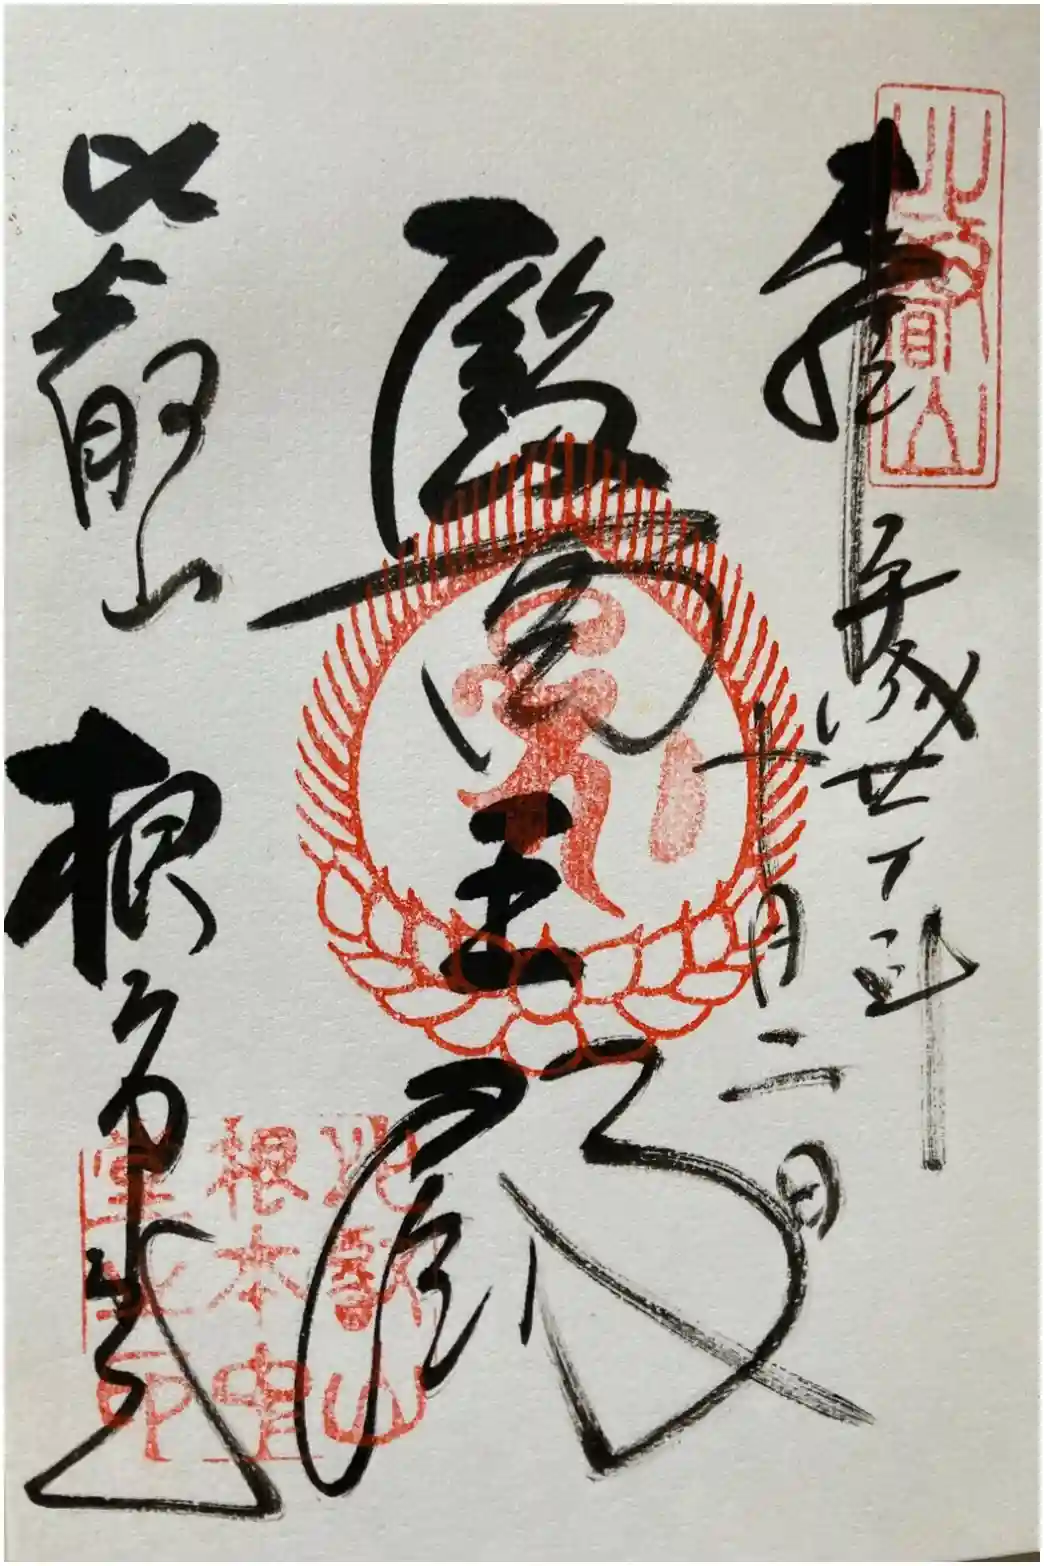 比叡山
奉拝
平成廿
年
十月二日
醫王殿
比叡山
根本中堂
比叡山
根本中
堂之印